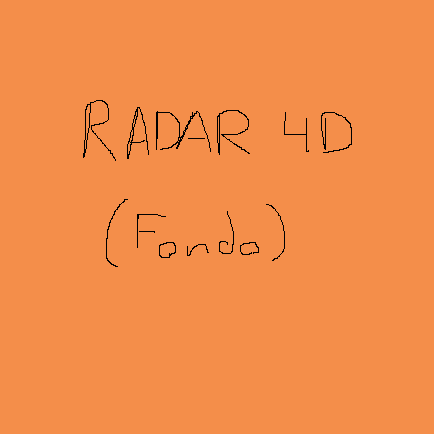 RADAR 4D
(Fondo)